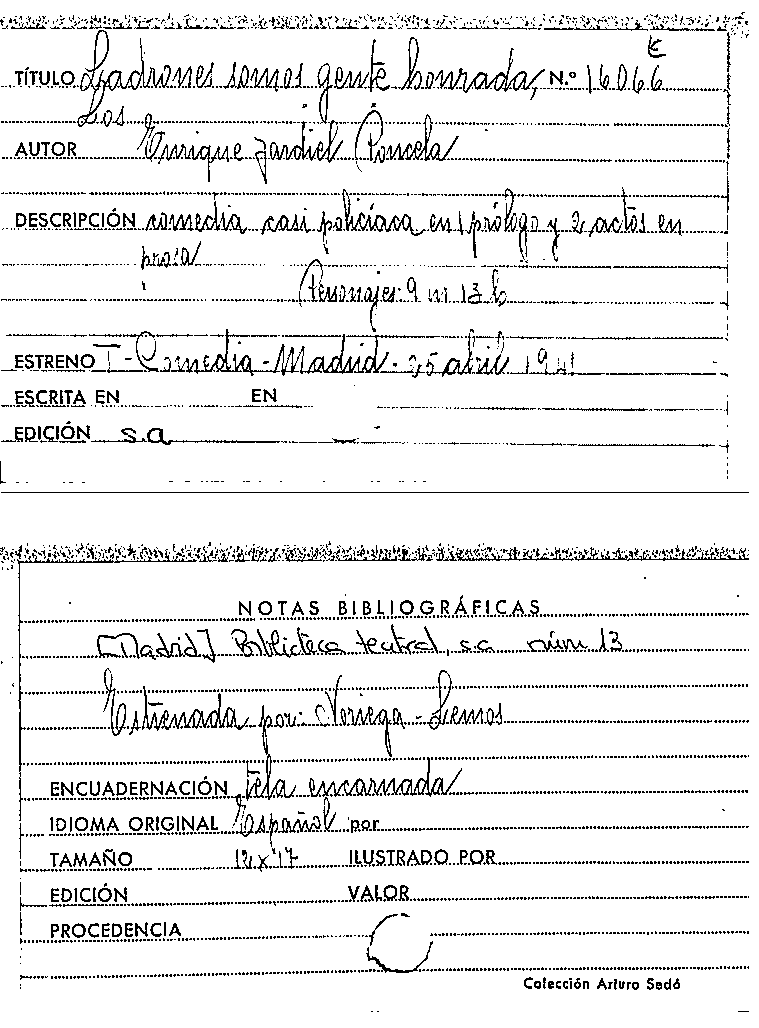 TÍTULO Ladrones somos gente honrada, N.º 16066
Los
AUTOR Enrique Jardiel Poncela
DESCRIPCIÓN comedia casi policíaca en 1 prólogo y 2 actos en
prosa
Personajes: 9 m 13 h
ESTRENO T-Comedia-Madrid-25 abril 1941
ESCRITA EN EN
EDICIÓN s.a
NOTAS BIBLIOGRÁFICAS
[Madrid] Biblioteca teatral, s.a núm 13
Estrenada por: Noriega-Lemos
ENCUADERNACIÓN tela encarnada
IDIOMA ORIGINAL Español por
TAMAÑO 12x17 ILUSTRADO POR
EDICIÓN VALOR
PROCEDENCIA
Colección Arturo Sedó